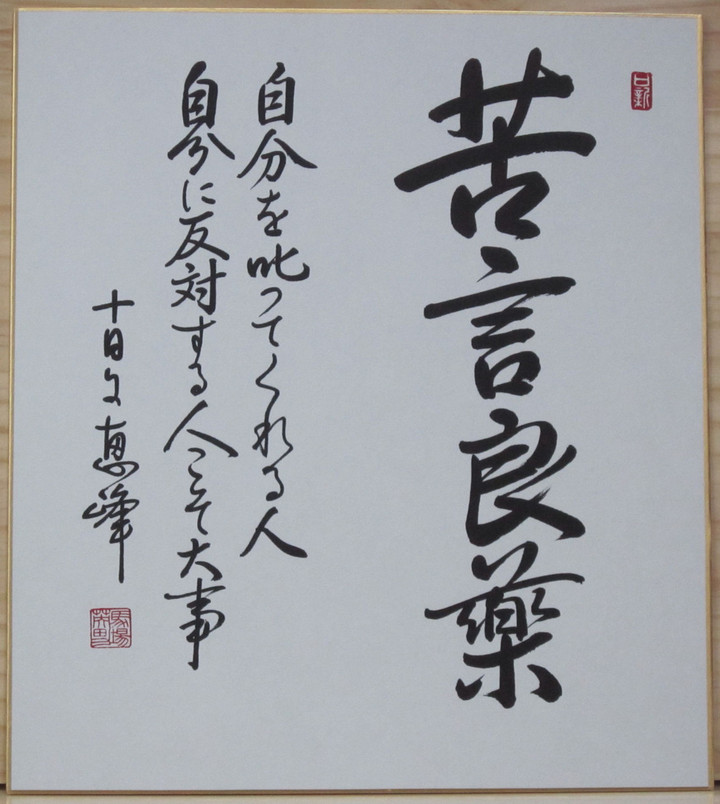 日新
苦言良薬
自分を叱ってくれる人
自分に反対する人こそ大事
十日 恵峰